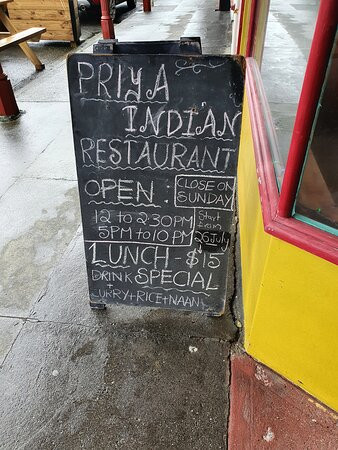 PRIYA
INDIAN
RESTAURANT
OPEN :
CLOSE ON
SUNDAY
12 to 2:30PM
5PM to 10PM
Start
from
26 July
LUNCH - $15
DRINK SPECIAL
+
CURRY+RICE+NAAN